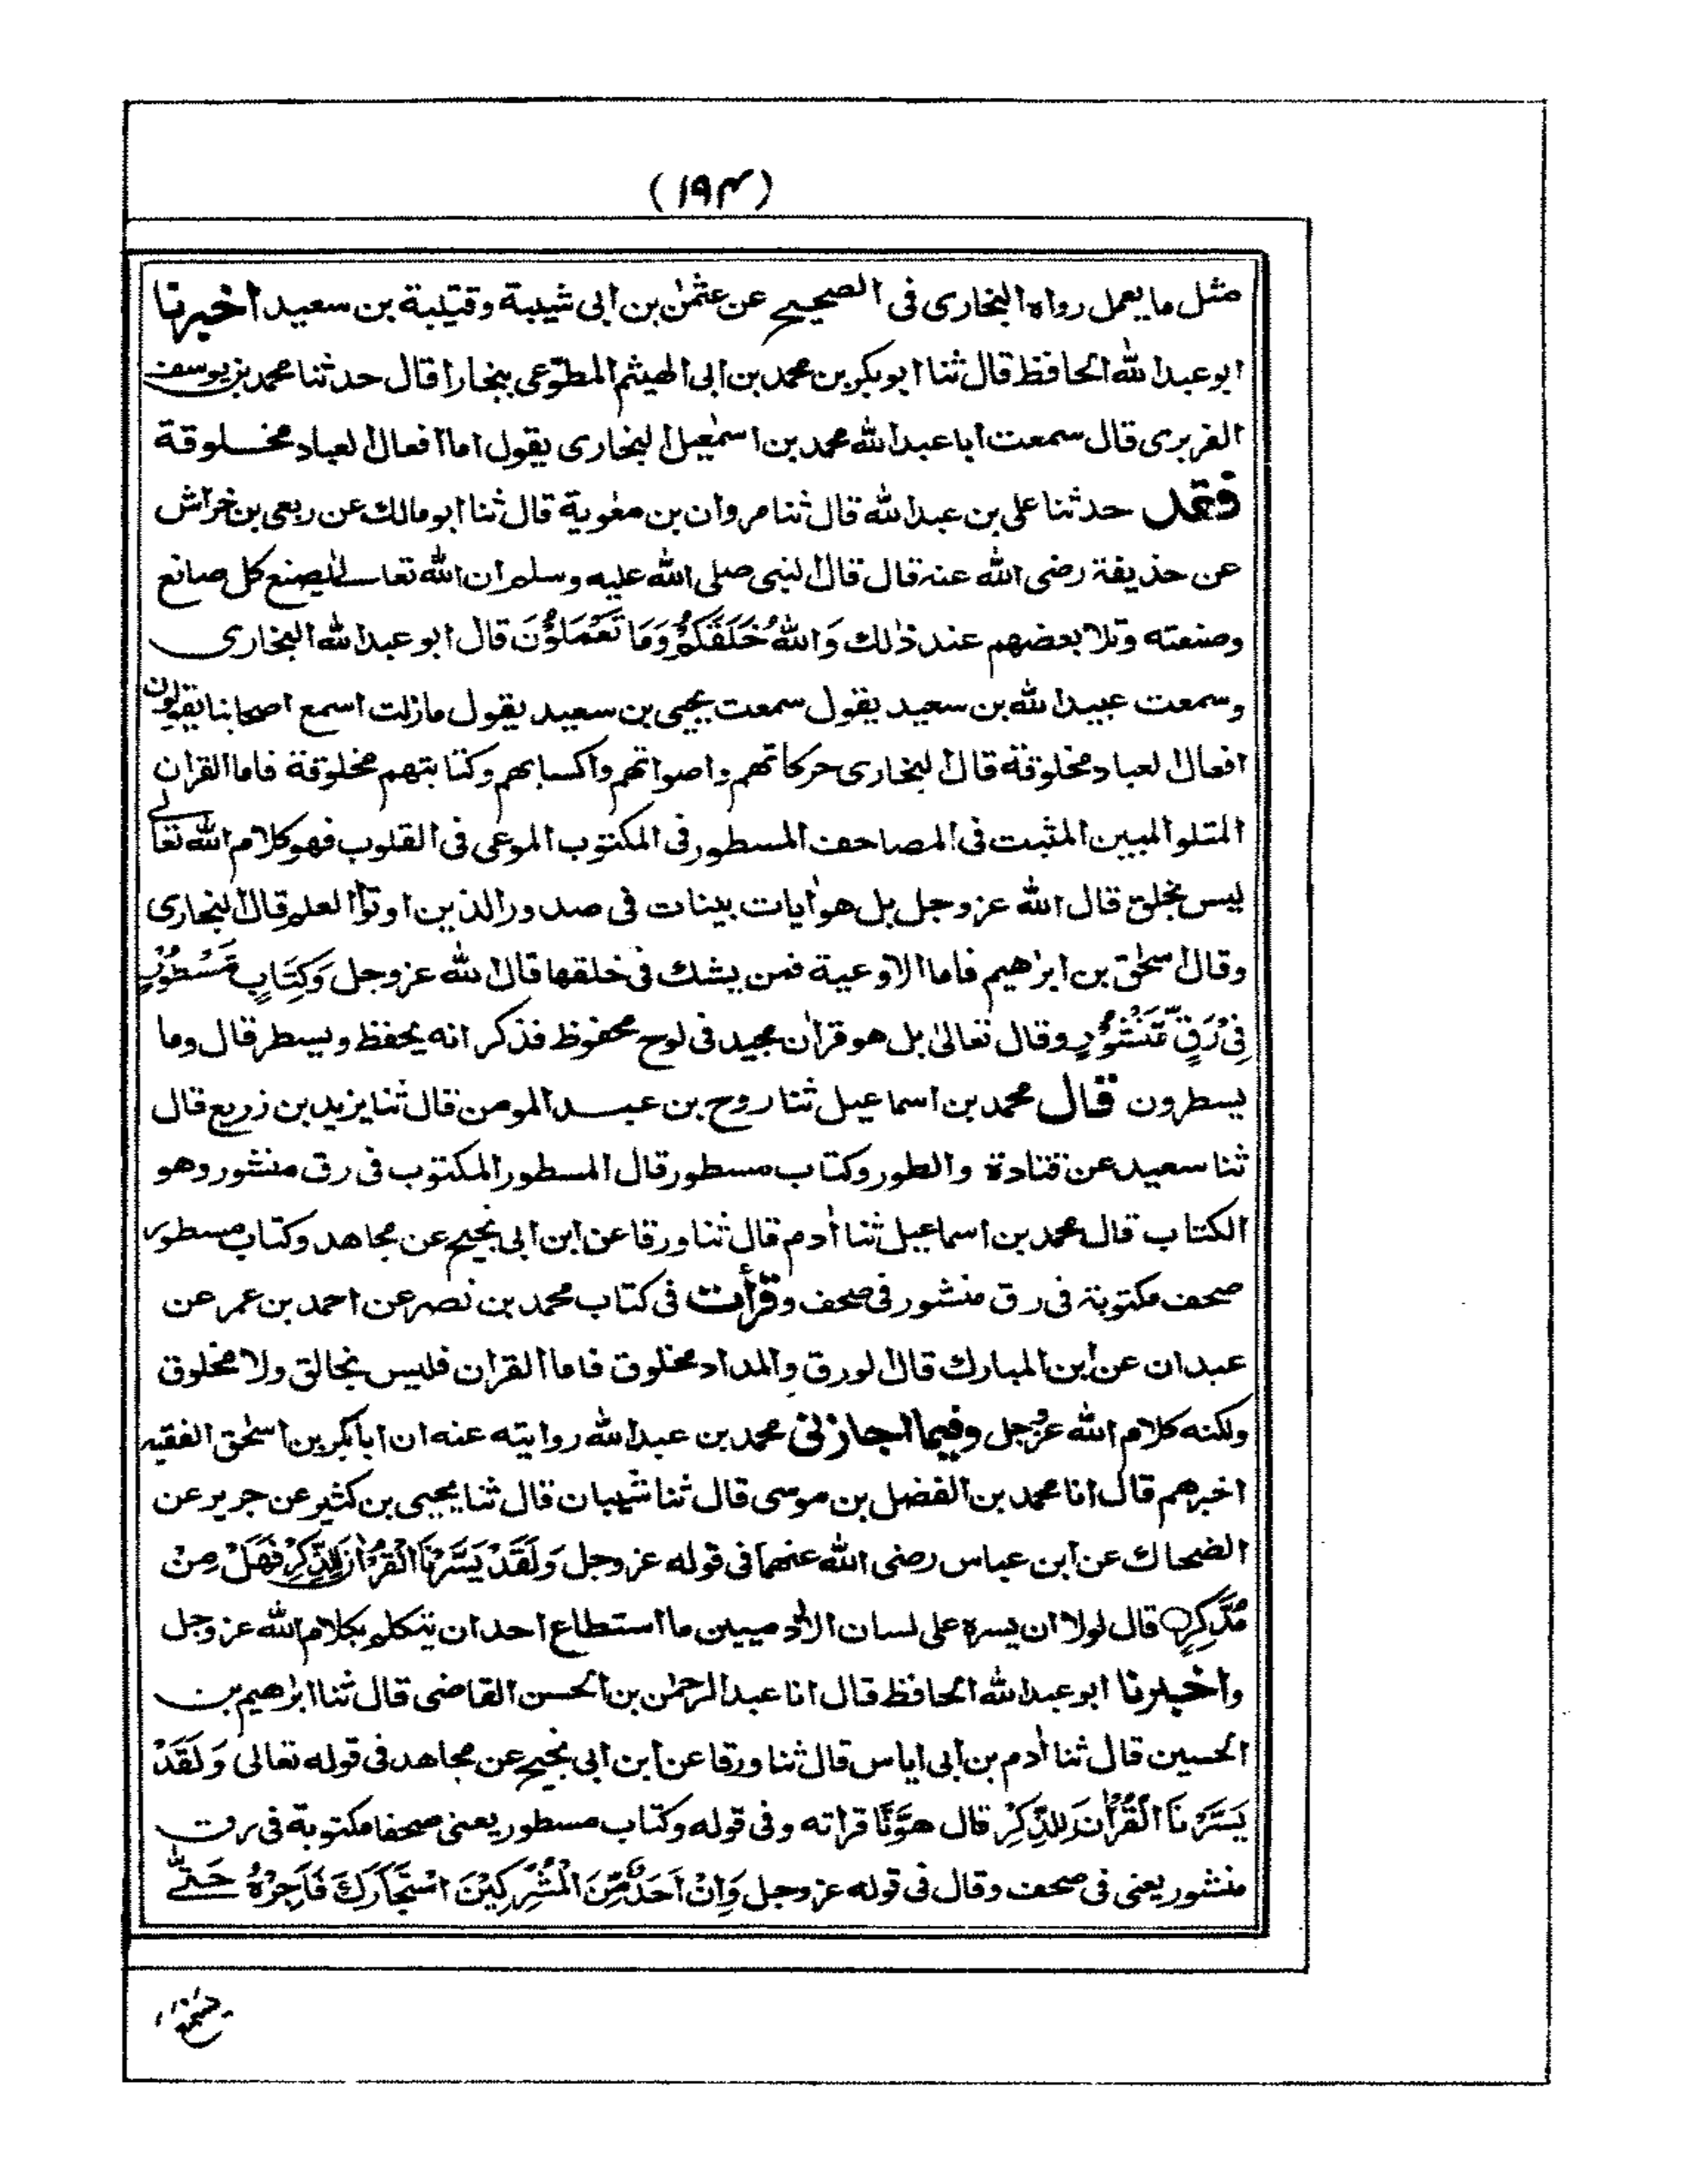 (۱۹۴)
مثل ما يعمل رواه البخارى فى الصحيح عن عثمٰن بن ابى شيبة وقتيبة بن سعيد اخبرنا
ابو عبد الله الحافظ قال ثنا ابو بكر بن محمد بن ابى الهيثم المطوّعى ببخارا قال حدثنا محمد بن يوسف
الفربرى قال سمعت ابا عبد الله محمد بن اسمٰعيل البخارى يقول اما افعال العباد مخلوقة
فقد حدثنا على بن عبد الله قال ثنا مروان بن معٰوية قال ثنا ابو مالك عن ربعى بن خراش
عن حذيفة رضى الله عنه قال قال النبى صلى الله عليه وسلم ان الله تعالى يصنع كل صانع
وصنعته وتلا بعضهم عند ذٰلك وَاللهُ خَلَقَكُمْ وَمَا تَعْمَلُوْنَ قال ابو عبد الله البخارى
وسمعت عبيد الله بن سعيد يقول سمعت يحيى بن سعيد يقول مازلت اسمع اصحابنا يقولون
افعال العباد مخلوقة قال البخارى حركاتهم واصواتهم واكسابهم وكتابتهم مخلوقة فاما القران
المتلو المبين المثبت فى المصاحف المسطور فى المكتوب الموعى فى القلوب فهو كلام الله تعالى
ليس بخلق قال الله عز وجل بل هو اٰيات بينات فى صدور الذين اوتوا العلم قال البخارى
وقال اسحٰق بن ابرٰهيم فاما الاوعية فمن يشك فى خلقها قال الله عز وجل وَكِتَابٍ مَّسْطُوْرٍ
فِىْ رَقٍّ مَّنْشُوْرٍ وقال تعالىٰ بل هو قراٰن مجيد فى لوح محفوظ فذكر انه يحفظ ويسطر قال وما
يسطرون قال محمد بن اسماعيل ثنا روح بن عبد المومن قال ثنا يزيد بن زريع قال
ثنا سعيد عن قتادة والطور وكتاب مسطور قال المسطور المكتوب فى رق منشور وهو
الكتاب قال محمد بن اسماعيل ثنا اٰدم قال ثنا ورقا عن ابن ابى نجيح عن مجاهد وكتاب مسطور
صحف مكتوبة فى رق منشور فى صحف وقرأت فى كتاب محمد بن نصر عن احمد بن عمر عن
عبدان عن ابن المبارك قال الورق والمداد مخلوق فاما القران فليس بخالق ولا مخلوق
ولكنه كلام الله عز وجل وفيما اجاز لى محمد بن عبد الله روايته عنه ان ابا بكر بن اسحٰق الفقيه
اخبرهم قال انا محمد بن الفضل بن موسى قال ثنا شيبان قال ثنا يحيى بن كثير عن جرير عن
الضحاك عن ابن عباس رضى الله عنهما فى قوله عز وجل وَلَقَدْ يَسَّرْنَا الْقُرْاٰنَ لِلذِّكْرِ فَهَلْ مِنْ
مُّدَّكِرٍ قال لولا ان يسره على لسان الاٰدميين ما استطاع احد ان يتكلم بكلام الله عز وجل
واخبرنا ابو عبد الله الحافظ قال انا عبد الرحمٰن بن الحسن القاضى قال ثنا ابرٰهيم بن
الحسين قال ثنا اٰدم بن ابى اياس قال ثنا ورقا عن ابن ابى نجيح عن مجاهد فى قوله تعالى وَلَقَدْ
يَسَّرْنَا الْقُرْاٰنَ لِلذِّكْرِ قال هوّنّا قراته وفى قوله وكتاب مسطور يعنى صحفا مكتوبة فى رق
منشور يعنى فى صحف وقال فى قوله عز وجل وَاِنْ اَحَدٌ مِّنَ الْمُشْرِكِيْنَ اسْتَجَارَكَ فَاَجِرْهُ حَتّٰى